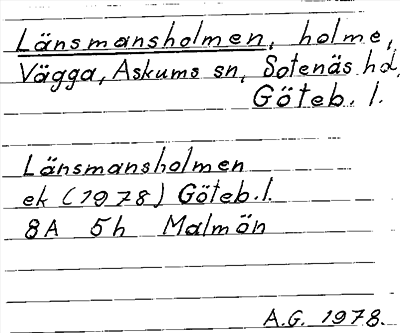 Länsmansholmen, holme,
Vägga, Askums sn, Sotenäs hd,
Göteb. l.
Länsmansholmen
ek (1978) Göteb. l.
8A 5h Malmön
A.G. 1978.